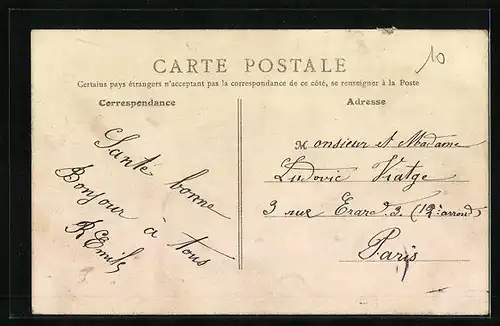 10
CARTE POSTALE
Certains pays étrangers n'acceptant pas la correspondance de ce côté, se renseigner à la Poste
Correspondance
Adresse
Santé bonne
Bonjour à tous
Monsieur et Madame
Ludovic Viatge
3 rue Erard 3 (12e arrond)
Paris